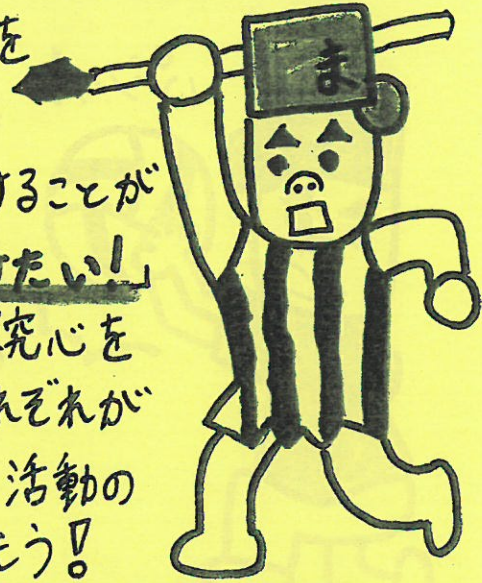 を
することが
たい!」
究心を
れぞれが
活動の
う!
ま